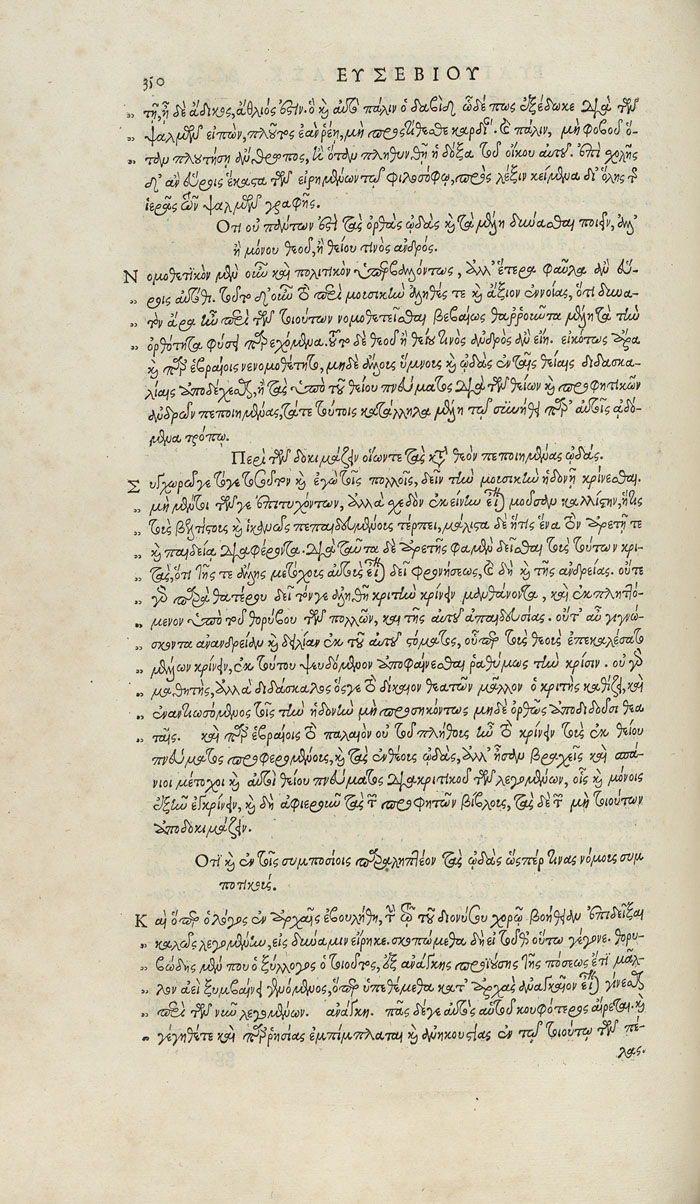 350 ΕΥΣΕΒΙΟΥ
„ τῇ, ᾖ δὲ ἄδικος, ἄθλιός ἐστιν. ὃ καὶ αὐτὸ πάλιν ὁ δαβὶδ ὧδέ πως ἐξέδωκε διὰ τῶν
„ ψαλμῶν εἰπὼν, πλοῦτος ἐὰν ῥέῃ, μὴ προστίθεσθε καρδίαν. καὶ πάλιν, μὴ φοβοῦ ὅ-
„ ταν πλουτήσῃ ἄνθρωπος, καὶ ὅταν πληθυνθῇ ἡ δόξα τοῦ οἴκου αὐτοῦ. ἐπὶ σχολῆς
δ' ἂν εὕροις ἕκαστα τῶν εἰρημένων τῷ φιλοσόφῳ, πρὸς λέξιν κείμενα δι' ὅλης τῆς
ἱερᾶς τῶν ψαλμῶν γραφῆς.
Οτι οὐ πάντων ἐστὶ τὰς ὀρθὰς ᾠδὰς καὶ τὰ μέλη δύνασθαι ποιεῖν, ἀλλ'
ἢ μόνου θεοῦ, ἢ θείου τινὸς ἀνδρός.
Νομοθετικὸν μὲν οὖν καὶ πολιτικὸν ὑπερβαλλόντως, ἀλλ' ἕτερα φαῦλα ἂν εὕ-
„ ροις αὐτόθι. τοῦτο δ' οὖν τὸ περὶ μουσικὴν ἀληθές τε καὶ ἄξιον ἐννοίας, ὅτι δυνα-
„ τὸν ἄρα ἦν περὶ τῶν τοιούτων νομοθετεῖσθαι βεβαίως θαρροῦντα μέλη τὰ τὴν
„ ὀρθότητα φύσει παρεχόμενα. τοῦτο δὲ θεοῦ ἢ θείου τινὸς ἀνδρὸς ἂν εἴη. εἰκότως ἄρα
καὶ παρ' ἑβραίοις νενομοθέτητο, μηδὲ ἄλλοις ὕμνοις καὶ ᾠδὰς ἐν ταῖς θείαις διδασκα-
λίαις ἀποδέχεσθαι, ἢ τὰς ὑπὸ τοῦ θείου πνεύματος διὰ τῶν θείων καὶ προφητικῶν
ἀνδρῶν πεποιημένας, τά τε τούτοις κατάλληλα μέλη τῷ συνήθει παρ' αὐτοῖς ᾀδό-
μενα τρόπῳ.
Περὶ τῶν δοκιμάζειν οἵων τε τὰς κατὰ θεὸν πεποιημένας ᾠδάς.
Συγχωρῶ γε τόγε τοσοῦτον καὶ ἐγὼ τοῖς πολλοῖς, δεῖν τὴν μουσικὴν ἡδονῇ κρίνεσθαι.
„ μὴ μέντοι τῶν γε ἐπιτυχόντων, ἀλλὰ σχεδὸν ἐκείνην εἶναι μοῦσαν καλλίστην, ἥτις
„ τοὺς βελτίστους καὶ ἱκανῶς πεπαιδευμένους τέρπει, μάλιστα δὲ ἥτις ἕνα τὸν ἀρετῇ τε
„ καὶ παιδείᾳ διαφέροντα. διὰ ταῦτα δὲ ἀρετῆς φαμὲν δεῖσθαι τοὺς τούτων κρι-
„ τὰς, ὅτι τῆς τε ἄλλης μετόχους αὐτοὺς εἶναι δεῖ φρονήσεως, καὶ δὴ καὶ τῆς ἀνδρείας. οὔτε
„ γὰρ παρὰ θατέρου δεῖ τόν γε ἀληθῆ κριτὴν κρίνειν μανθάνοντα, καὶ ἐκπληττό-
„ μενον ὑπὸ τοῦ θορύβου τῶν πολλῶν, καὶ τῆς αὐτοῦ ἀπαιδευσίας. οὔτ' αὖ γιγνώ-
„ σκοντα ἀνανδρείαν καὶ δειλίαν ἐκ τοῦ αὐτοῦ στόματος, οὗπερ τοὺς θεοὺς ἐπεκαλέσατο
„ μέλλων κρίνειν, ἐκ τούτου ψευδόμενον ἀποφαίνεσθαι ῥαθύμως τὴν κρίσιν. οὐ γὰρ
„ μαθητὴς, ἀλλὰ διδάσκαλος ὥς γε τὸ δίκαιον θεατῶν μᾶλλον ὁ κριτὴς καθίζει, καὶ
„ ἐναντιωσόμενος τοῖς τὴν ἡδονὴν μὴ προσηκόντως μηδὲ ὀρθῶς ἀποδιδοῦσι θεα
„ ταῖς. καὶ παρ' ἑβραίοις τὸ παλαιὸν οὐ τοῦ πλήθους ἦν τὸ κρίνειν τοὺς ἐκ θείου
πνεύματος προφερομένους, καὶ τὰς ἐνθέους ᾠδὰς, ἀλλ' ἦσαν βραχεῖς καὶ σπά-
νιοι μέτοχοι καὶ αὐτοὶ θείου πνεύματος διακριτικοῦ τῶν λεγομένων, οἷς καὶ μόνοις
ἐξῆν ἐγκρίνειν, καὶ δὴ ἀφιεροῦν τὰς τῶν προφητῶν βίβλους, τὰς δὲ τῶν μὴ τοιούτων
ἀποδοκιμάζειν.
Οτι καὶ ἐν τοῖς συμποσίοις παραληπτέον τὰς ᾠδὰς ὥσπέρ τινας νόμους συμ
ποτικούς.
Και ὅπερ ὁ λόγος ἐν ἀρχαῖς ἐβουλήθη, τὴν τῷ τοῦ διονύσου χορῷ βοήθειαν ἐπιδεῖξαι
„ καλῶς λεγομένην, εἰς δύναμιν εἴρηκε. σκοπώμεθα δὴ εἰ τοῦθ' οὕτω γέγονε. θορυ-
„ βώδης μέν που ὁ ξύλλογος ὁ τοιοῦτος, ἐξ ἀνάγκης προϊούσης τῆς πόσεως ἐπὶ μᾶλ-
„ λον ἀεὶ ξυμβαίνει γενόμενος, ὅπερ ὑπεθέμεθα κατ' ἀρχὰς ἀναγκαῖον εἶναι γίνεσθαι
„ περὶ τῶν νῦν λεγομένων. ἀνάγκη. πᾶς δέ γε αὐτὸς αὑτοῦ κουφότερος αἴρεται. καὶ
„ γέγηθέ τε καὶ παρρησίας ἐμπίμπλαται καὶ ἀνηκουστίας ἐν τῷ τοιούτῳ τῶν πέ-
λας.